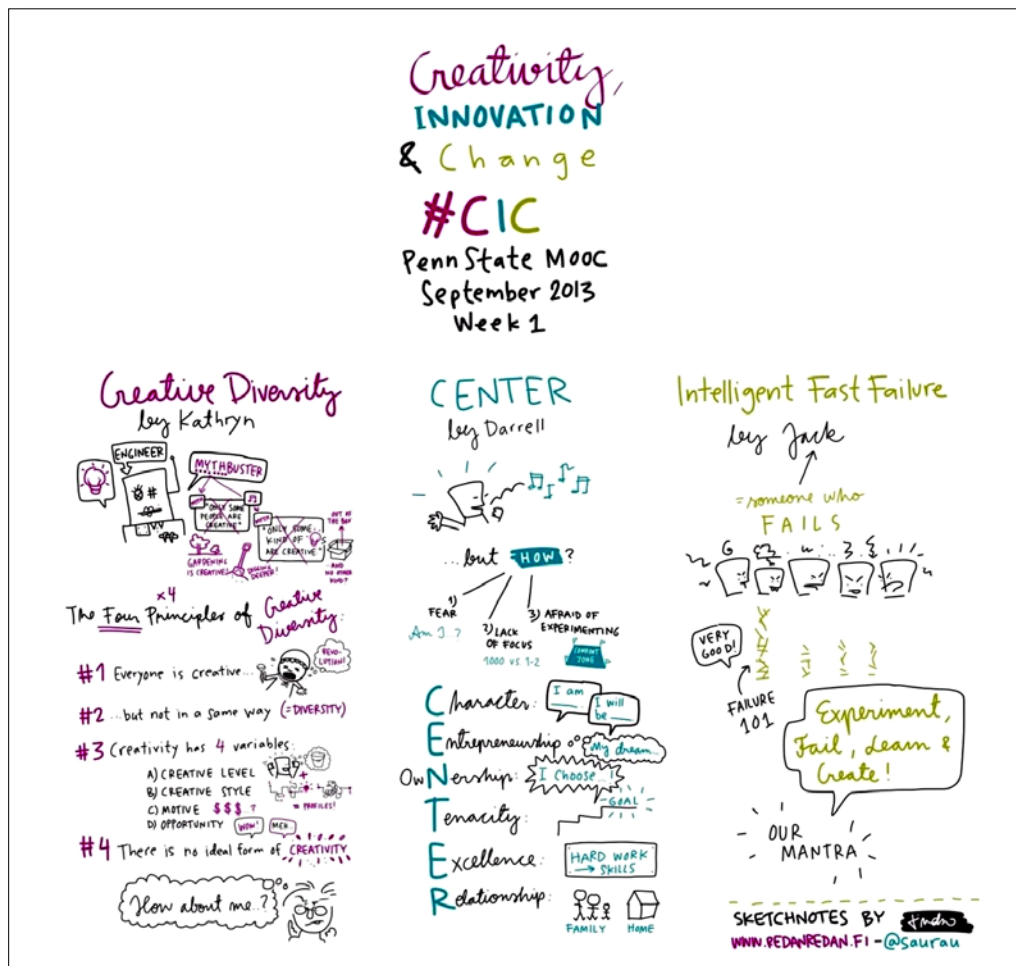 Creativity,
INNOVATION
& Change
#CIC
Penn State MOOC
September 2013
Week 1
Creative Diversity
by Kathryn
ENGINEER
MYTHBUSTER
"ONLY SOME
PEOPLE ARE
CREATIVE"
"ONLY SOME
KIND OF
ARE CREATIVE"
OUT OF
THE BOX
GARDENING
IS CREATIVE!
DIGGING
DEEPER!
AND
NO OTHER
KIND?
x4
The Four Principles of Creative
Diversity:
#1 Everyone is creative...
REVO-
LUTION!
#2 ...but not in a same way (=DIVERSITY)
#3 Creativity has 4 variables:
A) CREATIVE LEVEL
B) CREATIVE STYLE
C) MOTIVE $$$ ?
D) OPPORTUNITY
= PROFILES!
WOW!
MEH..
#4 There is no ideal form of CREATIVITY
How about me..?
CENTER
by Darrell
...but HOW?
1)
FEAR
Am I..?
2) LACK
OF FOCUS
1000 vs. 1-2
3) AFRAID OF
EXPERIMENTING
COMFORT
ZONE
Character:
I am ___
I will
be ___
Entrepreneurship
My dream...
OwNership:
I Choose...!
Tenacity:
GOAL
Excellence:
HARD WORK
→ SKILLS
Relationship:
FAMILY
HOME
Intelligent Fast Failure
by Jack
=someone who
FAILS
VERY
GOOD!
FAILURE
101
Experiment,
Fail, Learn &
Create!
OUR
MANTRA
SKETCHNOTES BY
WWW.REDANREDAN.FI - @saurau